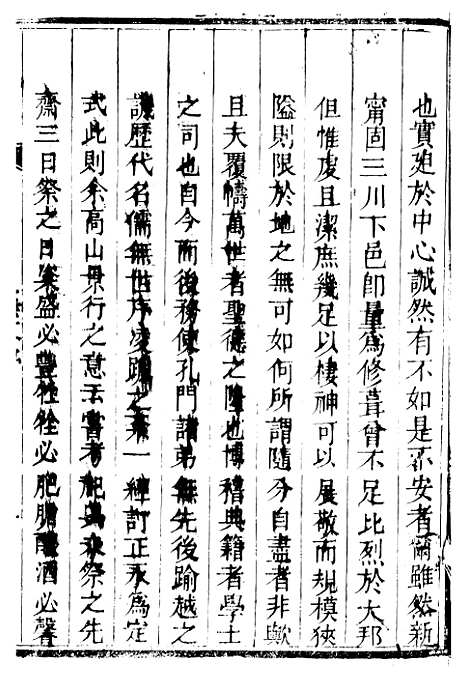 也實廹於中心誠然有不如是不安者爾雖然新
甯固三川下邑卽量為修葺曾不足比烈於大邦
但惟虔且潔庶幾足以棲神可以展敬而規模狹
隘則限於地之無可如何所謂隨分自盡者非歟
且夫覆幬萬世者聖德之隆也博稽典籍者學士
之司也自今而後務使孔門諸弟無先後踰越之
譏歷代名儒無世序凌躐之弊一經訂正永為定
式此則余高山景行之意云嘗考祀典承祭之先
齋三日祭之日粢盛必豐牲牷必肥腯酒必馨